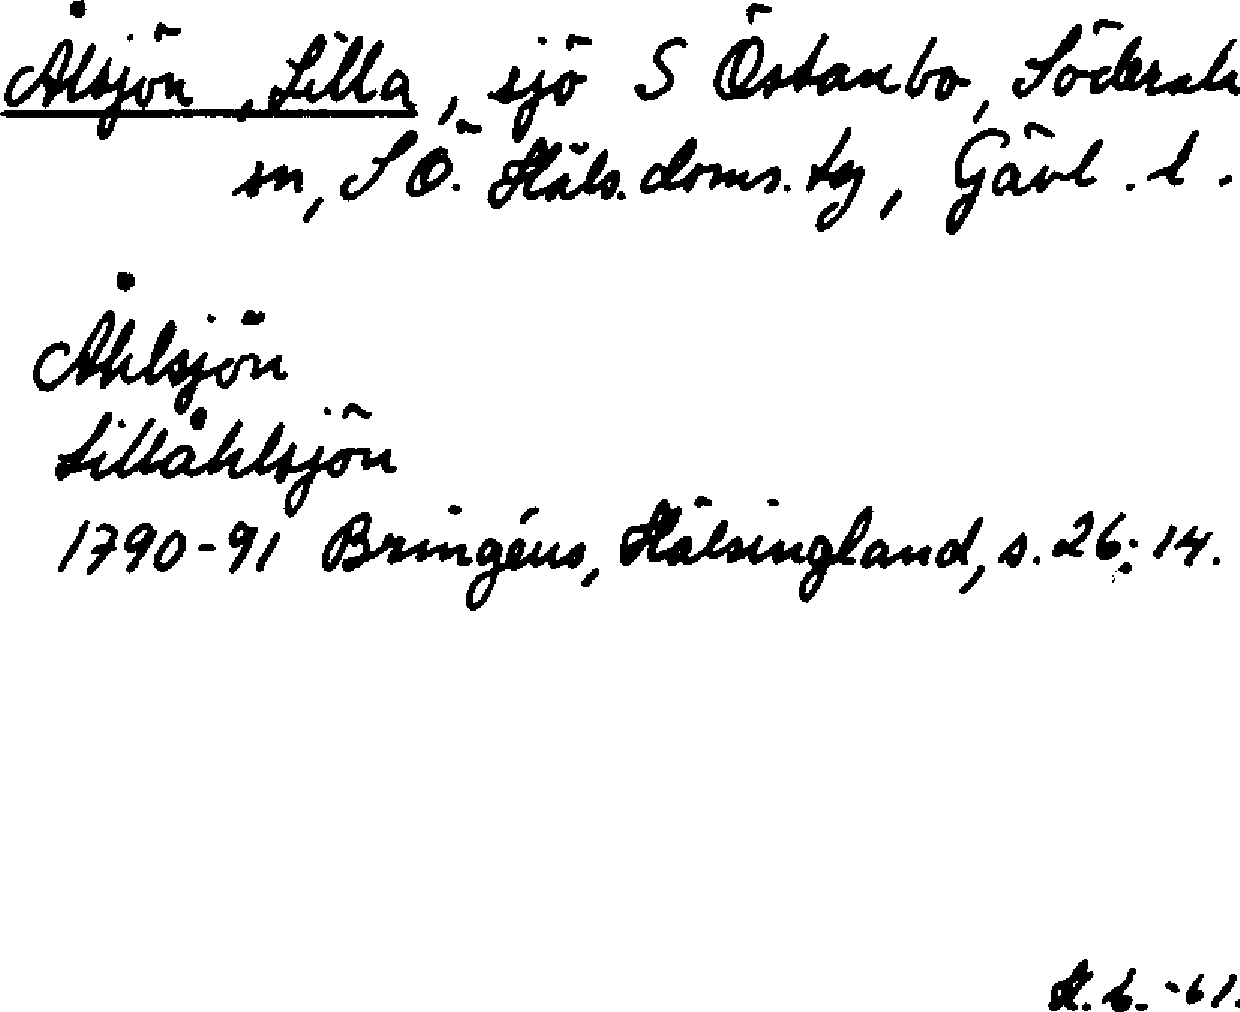 Ålsjön, Lilla, sjö S Östanbo, Söderala
sn, SÖ. Häls. doms. tg, Gävl. l.
Åhlsjön
Lillåhlsjön
1790-91 Bringéus, Hälsingland, s. 26: 14.
H. b. -61.